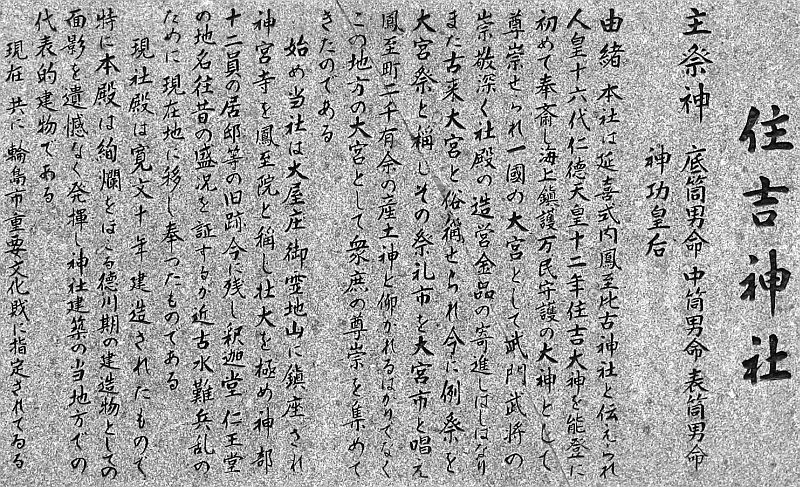 住吉神社
主祭神 底筒男命 中筒男命 表筒男命
神功皇后
由緒 本社は延喜式内鳳至比古神社と伝えられ
人皇十六代仁徳天皇十二年住吉大神を能登に
初めて奉斎し海上鎮護万民守護の大神として
尊崇せられ一國の大宮として武門武将の
崇敬深く社殿の造営金品の寄進しばしばなり
また古来大宮と俗稱せられ今に例祭を
大宮祭と稱しその祭礼市を大宮市と唱え
鳳至町二千有余の産土神と仰かれるばかりでなく
この地方の大宮として衆庶の尊崇を集めて
きたのである
始め当社は大屋庄御霊地山に鎮座され
神宮寺を鳳至院と稱し壮大を極め神部
十二員の居邸等の旧跡今に残し釈迦堂仁王堂
の地名往昔の盛況を証するが近古水難兵乱の
ために現在地に移し奉ったものである
現社殿は寛文十年建造されたもので
特に本殿は絢爛をほこる徳川期の建造物としての
面影を遺憾なく発揮し神社建築の当地方での
代表的建物である
現在 共に輪島市重要文化財に指定されてゐる